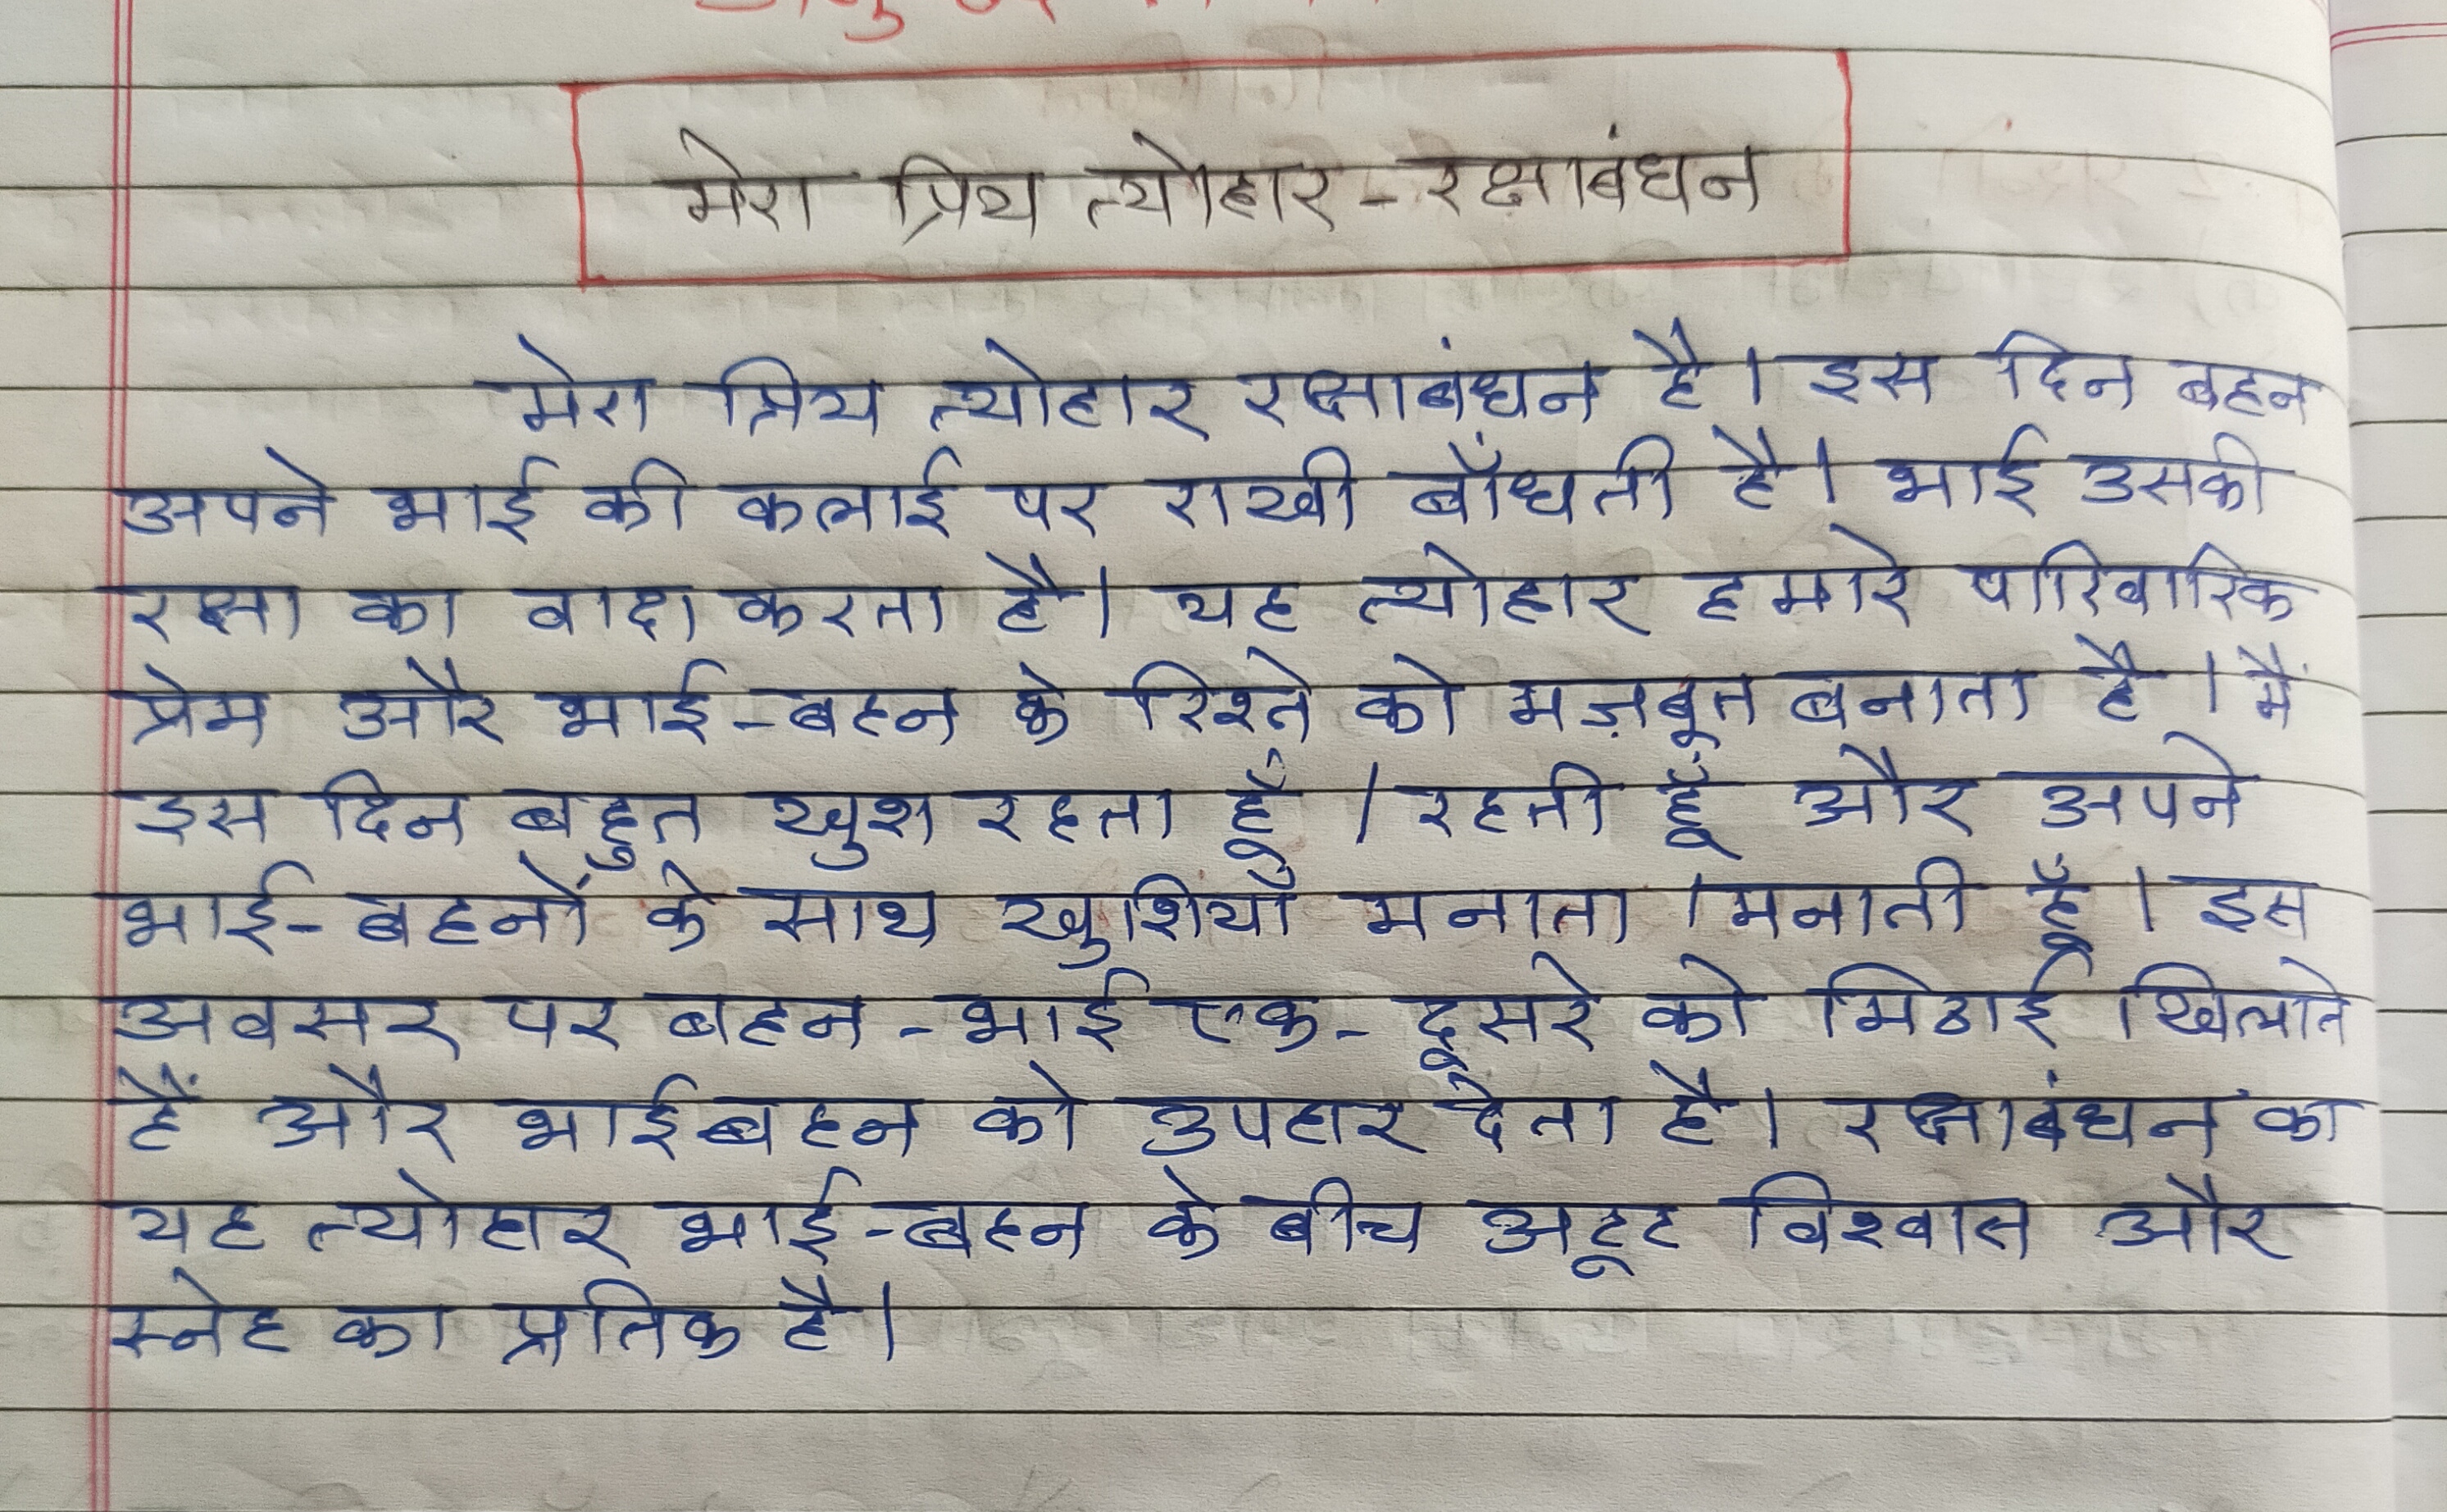 मेरा प्रिय त्योहार - रक्षाबंधन
मेरा प्रिय त्योहार रक्षाबंधन है। इस दिन बहन
अपने भाई की कलाई पर राखी बाँधती है। भाई उसकी
रक्षा का वादा करता है। यह त्योहार हमारे पारिवारिक
प्रेम और भाई-बहन के रिश्ते को मज़बूत बनाता है । मैं
इस दिन बहुत खुश रहता हूँ / रहती हूँ और अपने
भाई-बहनों के साथ खुशियाँ मनाता / मनाती हूँ । इस
अवसर पर बहन - भाई एक - दूसरे को मिठाई खिलाते
हैं और भाई बहन को उपहार देता है। रक्षाबंधन का
यह त्योहार भाई-बहन के बीच अटूट विश्वास और
स्नेह का प्रतिक है।